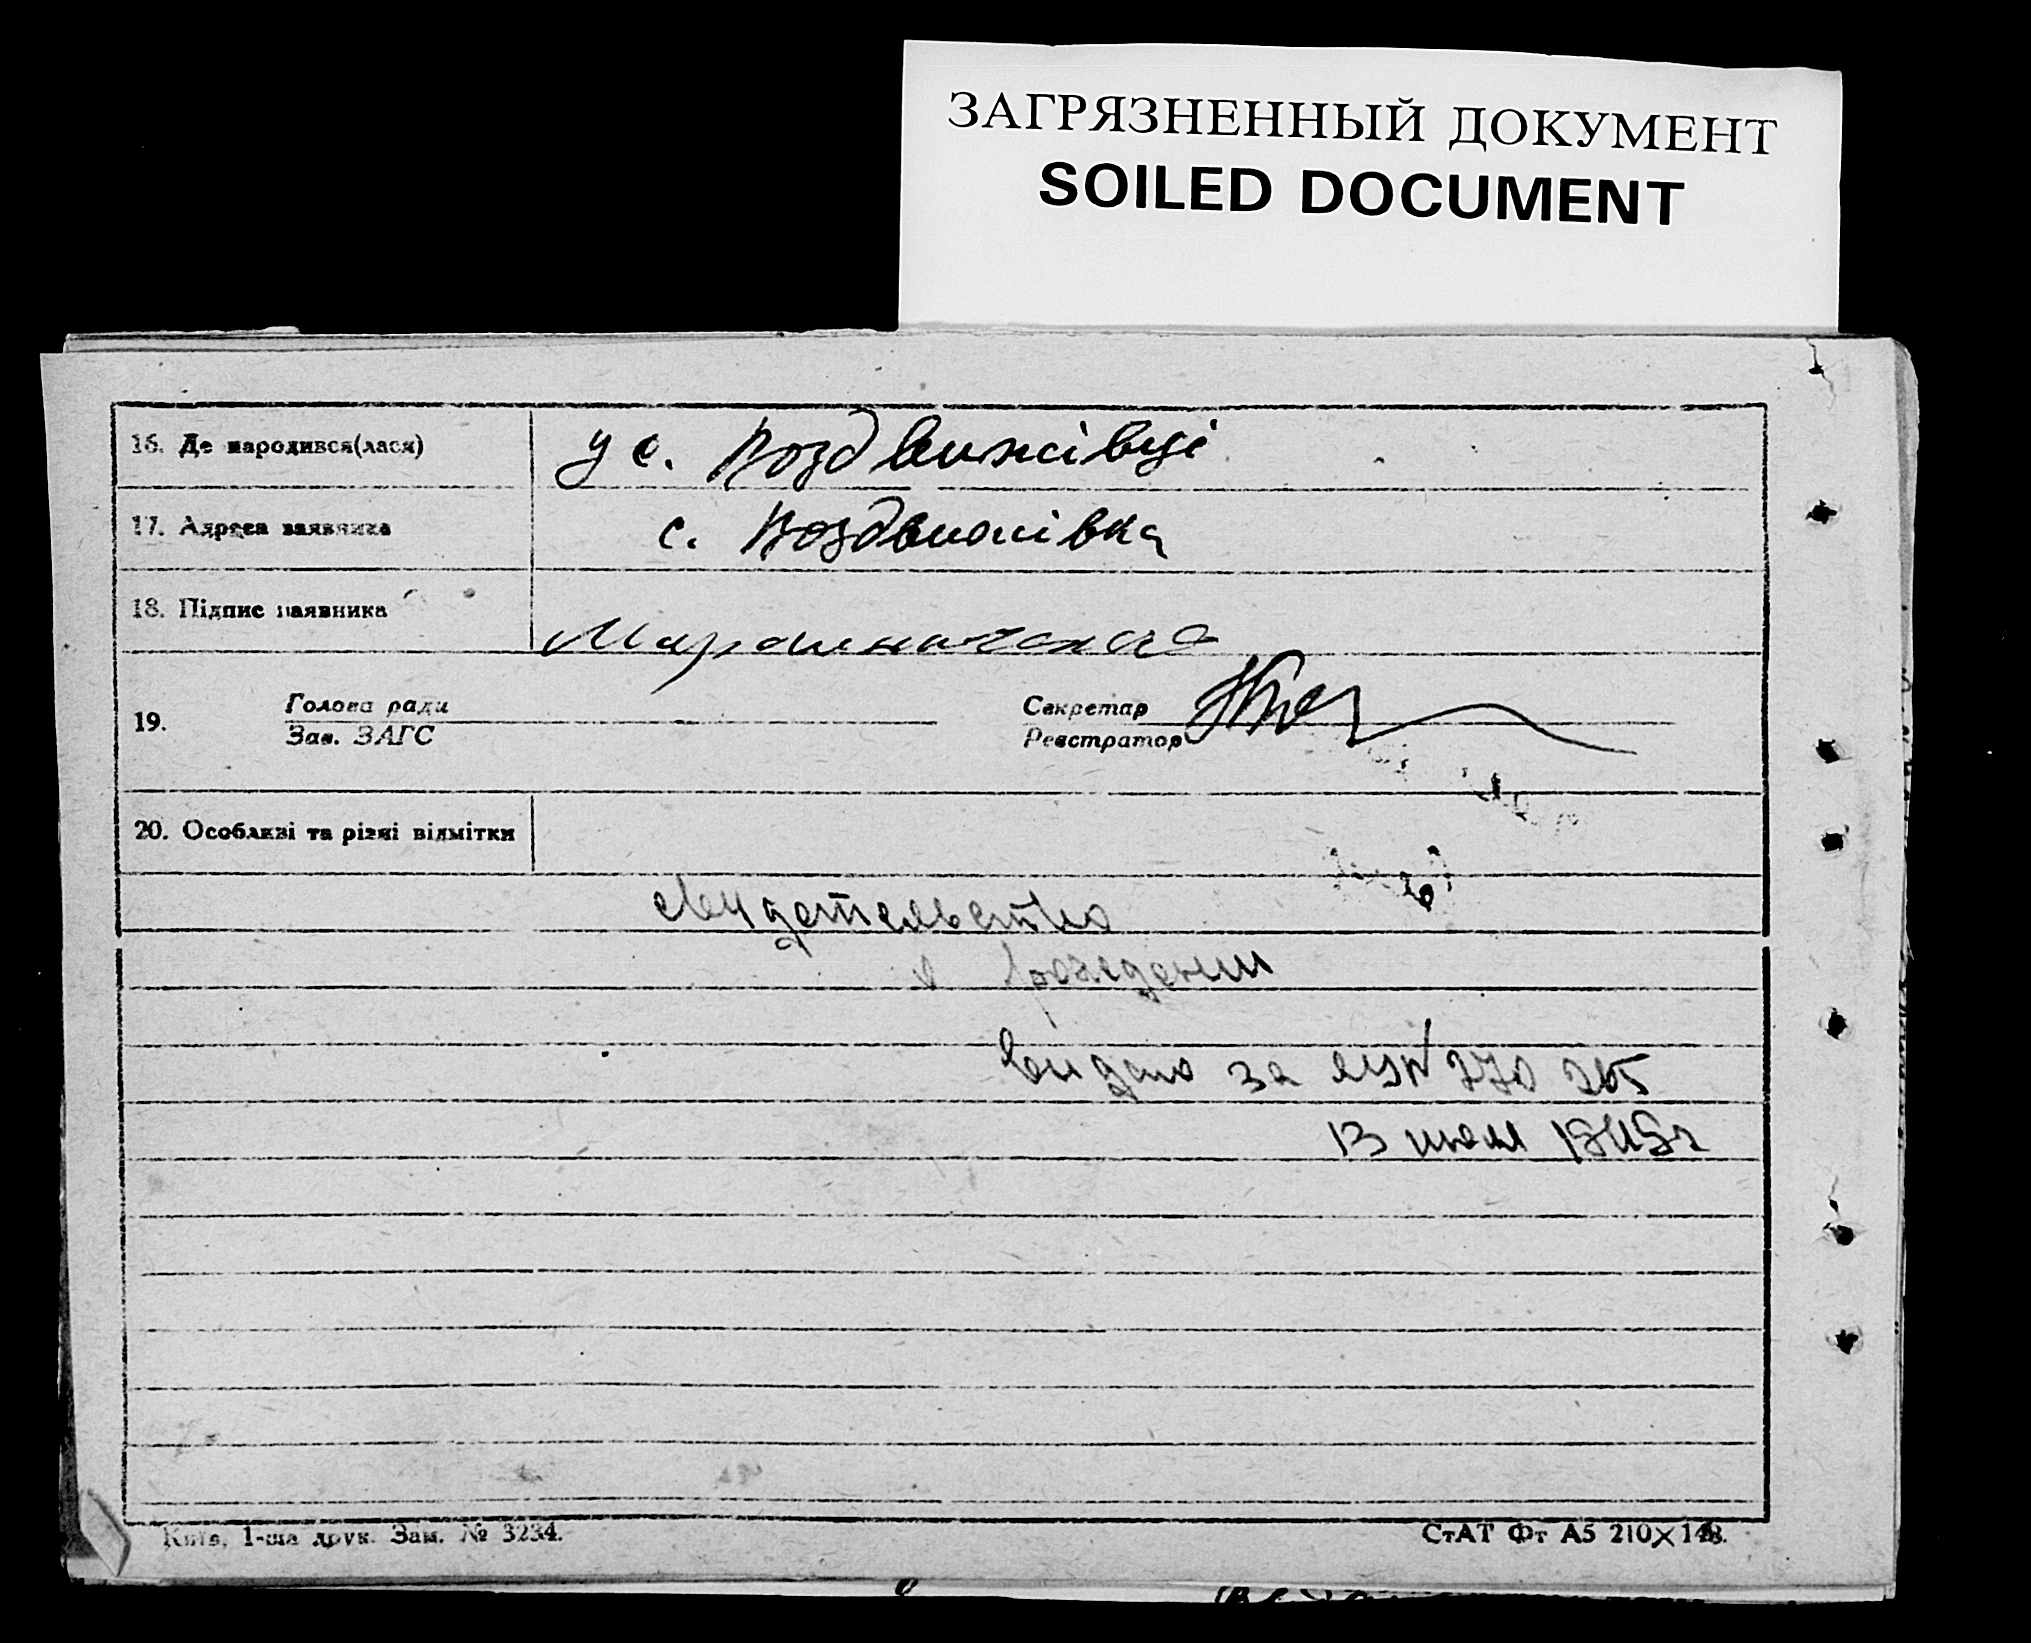 ЗАГРЯЗНЕННЫЙ ДОКУМЕНТ
SOILED DOCUMENT
16. Де народився(лася) у с. Воздвижівці
17. Адреса заявника с. Воздвижівка
18. Підпис заявника
19. Голова ради Секретар
Зав. ЗАГС Реєстратор
20. Особливі та різні відмітки
свидетельство
о рождении
видано за
13 июля
Київ, 1-ша друк. Зам. № 3234.
СтАТ Фт А5 210×148.